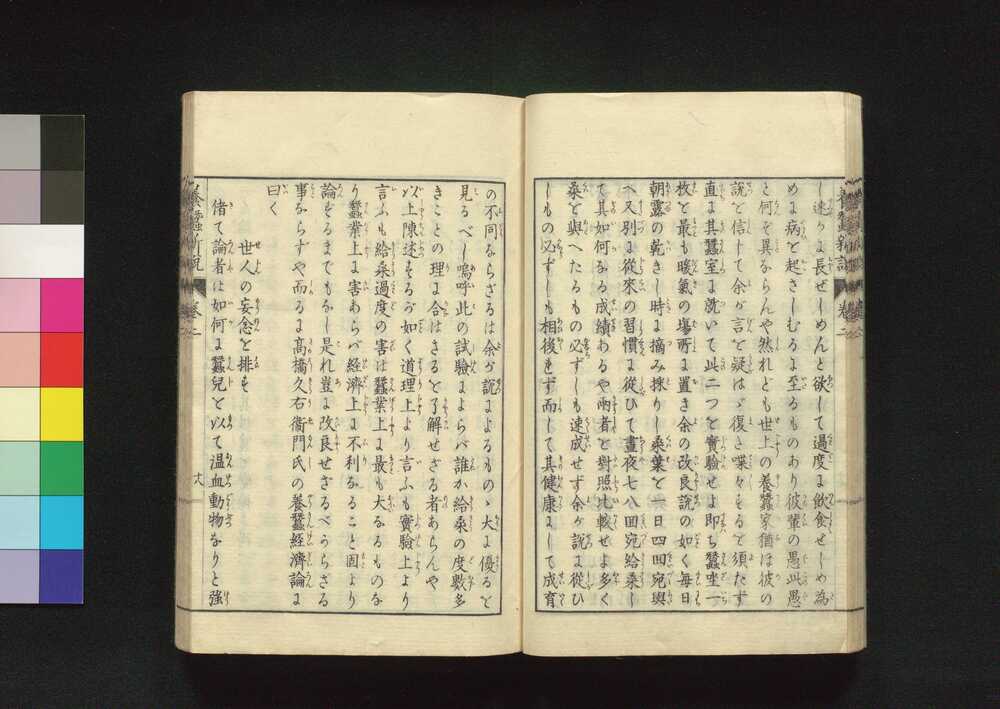 し速かに長ぜしめんと欲して過度に飲食せしめ為
めに病を起さしむるに至るものあり彼輩の愚此愚
と何ぞ異ならんや然れども世上の養蠶家猶ほ彼の
説を信して余が言を疑はゞ復た喋々するを須たず
直に其蠶室に就いて此二つを實驗せよ即ち蠶坐一
枚を最も暖氣の場所に置き余の改良説の如く毎日
朝露の乾きし時に摘み採りし桑葉を一日四回宛與
へ又別に從來の習慣に從ひて晝夜七八回宛給桑し
て其如何なる成績あるや兩者を對照比較せよ多く
桑を與へたるもの必ずしも速成せず余が説に從ひ
しもの必ずしも相後れず而して其健康にして成育
養蠶新説 卷二
の不同ならざるは余が説によるものゝ大に優るを
見るべし嗚呼此の試驗によらば誰か給桑の度數多
きことの理に合はさるを了解せざる者あらんや
以上陳述するが如く道理上より言ふも實驗上より
言ふも給桑過度の害は蠶業上に最も大なるものな
り蠶業上に害あらば經濟上に不利なること固より
論をまるまでもなし是れ豈に改良せざるべからざる
事ならずや而るに高橋久右衞門氏の養蠶經濟論に
曰く
世人の妄念を排す
偖て論者は如何に蠶兒を以て温血動物なりと強
養蠶新説 卷二